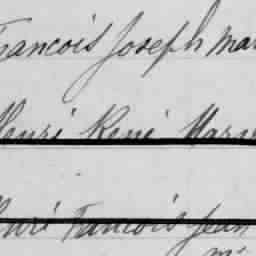 François Joseph mar
Henri René Mar
Henri François Jean